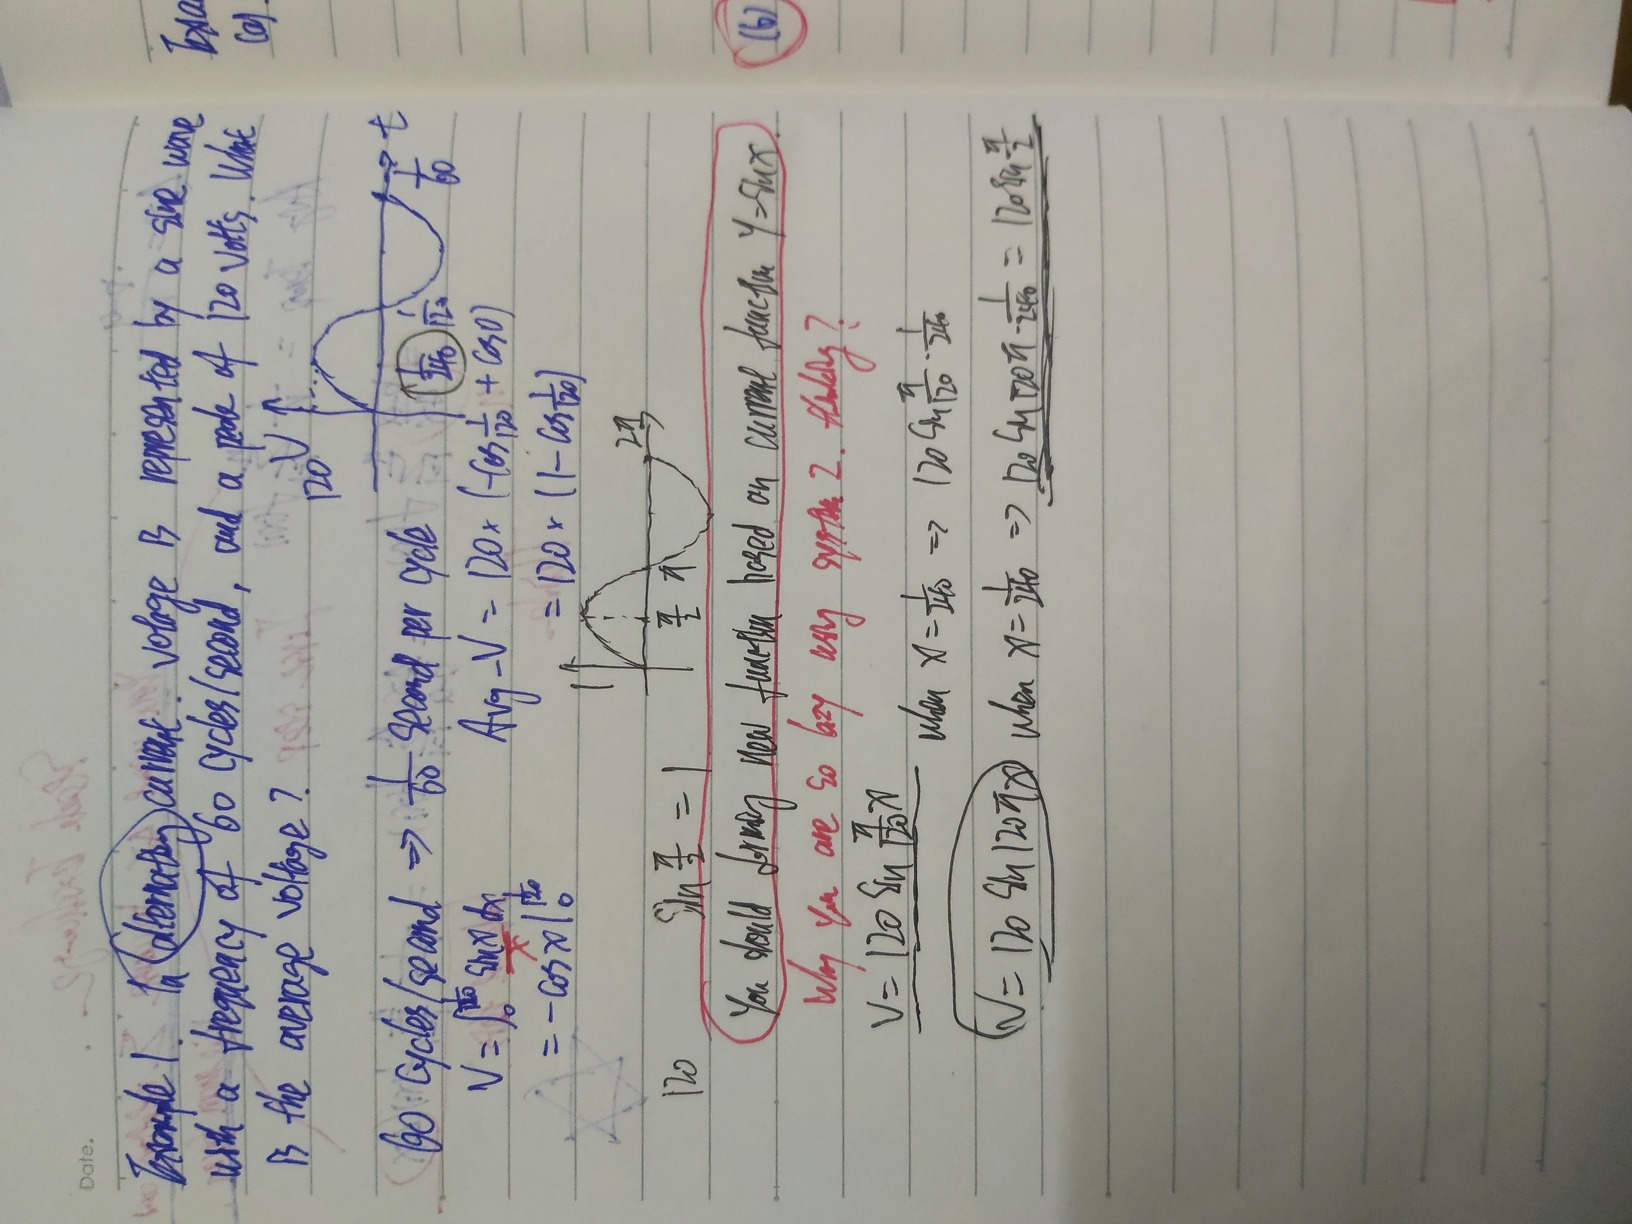 Date.
Example 1. In alternating current. voltage is represented by a sine wave
with a frequency of 60 cycles/second, and a peak of 120 volts. What
is the average voltage?
V
120
t
1/240 1/120 1/60
60 cycles/second => 1/60 second per cycle
V = ∫₀^(1/120) sin x dx
Avg-V = 120 × (-cos 1/120 + cos 0)
x
= -cos x |₀^(1/120)
= 120 × (1 - cos 1/120)
1
π/2 π 2π
120 sin π/2 = 1
You should forming new function based on current function y = sin x.
Why you are so lazy using system 2. thinking?
V = 120 sin π/120 x
when x = 1/240 => 120 sin π/120 · 1/240
V = 120 sin 120πx when x = 1/240 => 120 sin 120π · 1/240 = 120 sin π/2
(b)